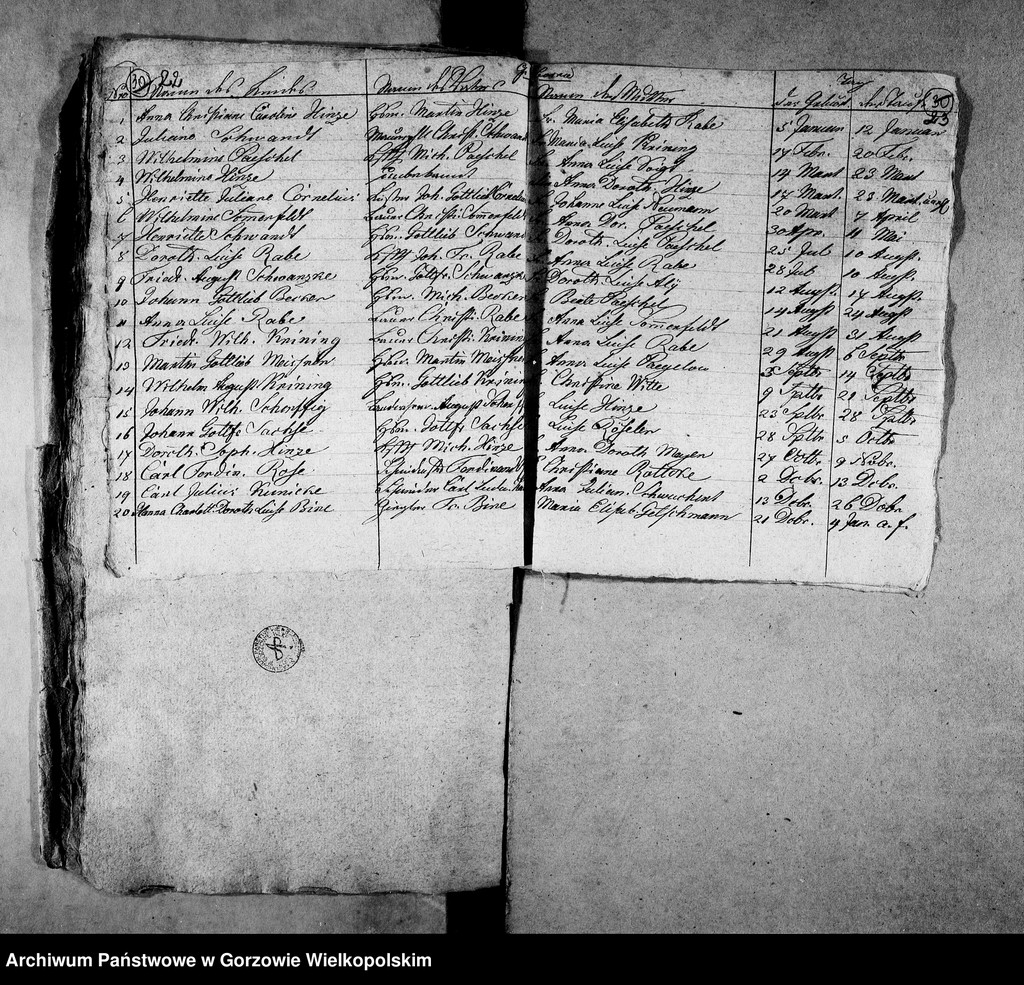 30 22
30
23
Nro Namen des Kindes Namen des Vaters Namen der Mutter Tag der Geburt der Taufe
1 Anna Christiane Caroline Hinze Martin Hinze Fr. Maria Elisabeth Rabe 5 Januar 12 Januar
2 Juliane Schwandt Christ. Schwandt Maria Luise Krining 17 Febr. 20 Febr.
3 Wilhelmine Paeschel Mich. Paeschel Anna Luise Voigt 14 Mart 23 Mart
4 Wilhelmine Hinze Unbekannt Anna Doroth. Hinze 17 Mart 23 Mart
5 Henriette Juliane Cornelius Joh. Gottlieb Cornelius Johanne Luise Neumann 20 Mart 7 April
6 Wilhelmine Somerfeldt Bauer Christ. Somerfeldt Anna Dor. Paeschel 30 Apr. 11 Mai
7 Henriette Schwandt Gottlieb Schwandt Doroth. Luise Paeschel 25 Jul 10 August
8 Doroth. Luise Rabe Joh. Fr. Rabe Anna Luise Rabe 28 Jul 10 August
9 Friedr. August Schwanzke Gottfr. Schwanzke Doroth. Luise 12 August 17 August
10 Johann Gottlieb Becker Mich. Becker Beate Paeschel 14 August 24 August
11 Anna Luise Rabe Bauer Christ. Rabe Anna Luise Somerfeldt 21 August 31 August
12 Friedr. Wilh. Krining Bauer Christ. Krining Anna Luise Rabe 29 August 6 Septbr
13 Martin Gottlieb Maissner Martin Maissner Anna Luise Pagelow Septbr 14 Septbr
14 Wilhelm August Krining Gottlieb Krining Christine Witte 9 Septbr 21 Septbr
15 Johann Wilh. August Luise Hinze 23 Septbr 28 Septbr
16 Johann Gottfr. Sachse Gottfr. Sachse Luise Röseler 28 Septbr 5 Octbr
17 Doroth. Soph. Hinze Mich. Hinze Anna Doroth. Meyer 27 Octbr 9 Nobr.
18 Carl Ferdin. Rose Ferdinand Christiane Radtke 2 Dcbr. 13 Dcbr.
19 Carl Julius Kunicke Carl Anna Julian. 13 Dcbr. 26 Dcbr.
20 Hanna Charlott. Doroth. Luise Bine Fr. Bine Maria Elisab. 21 Dcbr. 4 Jan. a. f.
Archiwum Państwowe w Gorzowie Wielkopolskim